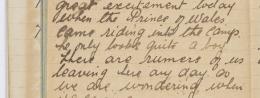 great excitement today
7 when the Prince of Wales
came riding into the camp.
He only looks quite a boy
There are rumors of us
leaving here any day so
we are wondering when